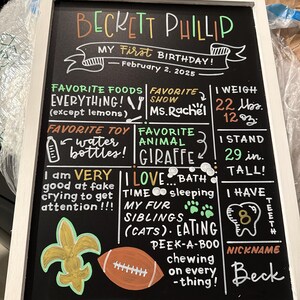 BECKETT PHILLIP
MY First BIRTHDAY!
February 2, 2025
FAVORITE FOODS
EVERYTHING!
(except lemons)
FAVORITE
SHOW
Ms. Rachel
I WEIGH
22 lbs.
12 oz.
FAVORITE TOY
water
bottles!
FAVORITE
ANIMAL
GIRAFFE
I STAND
29 in.
TALL!
I am VERY
good at fake
crying to get
attention!!!
I LOVE... BATH
TIME sleeping
MY FUR
SIBLINGS
(CATS). EATING
PEEK-A-BOO
chewing
on every
-thing!
I HAVE
8
TEETH
NICKNAME
Beck